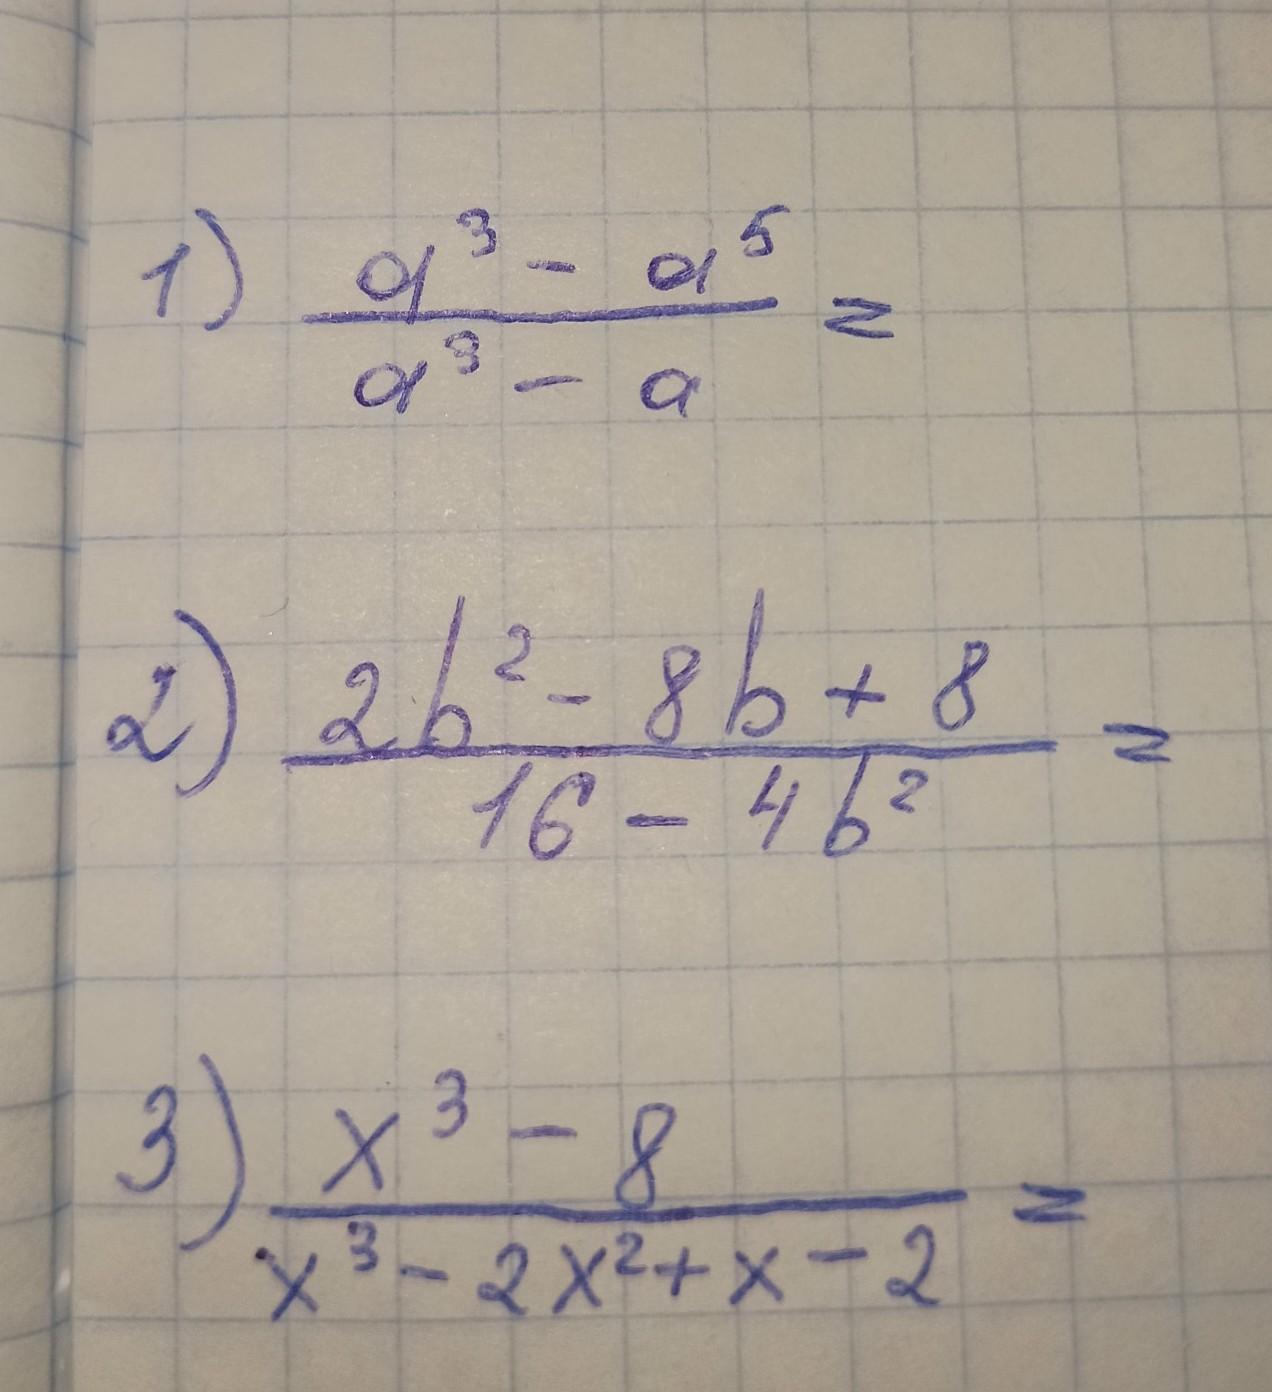 1) (a³ - a⁵)/(a³ - a) =
2) (2b² - 8b + 8)/(16 - 4b²) =
3) (x³ - 8)/(x³ - 2x² + x - 2) =